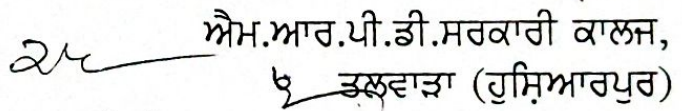 ਐਮ.ਆਰ.ਪੀ.ਡੀ.ਸਰਕਾਰੀ ਕਾਲਜ,
ਤਲਵਾੜਾ (ਹੁਸ਼ਿਆਰਪੁਰ)